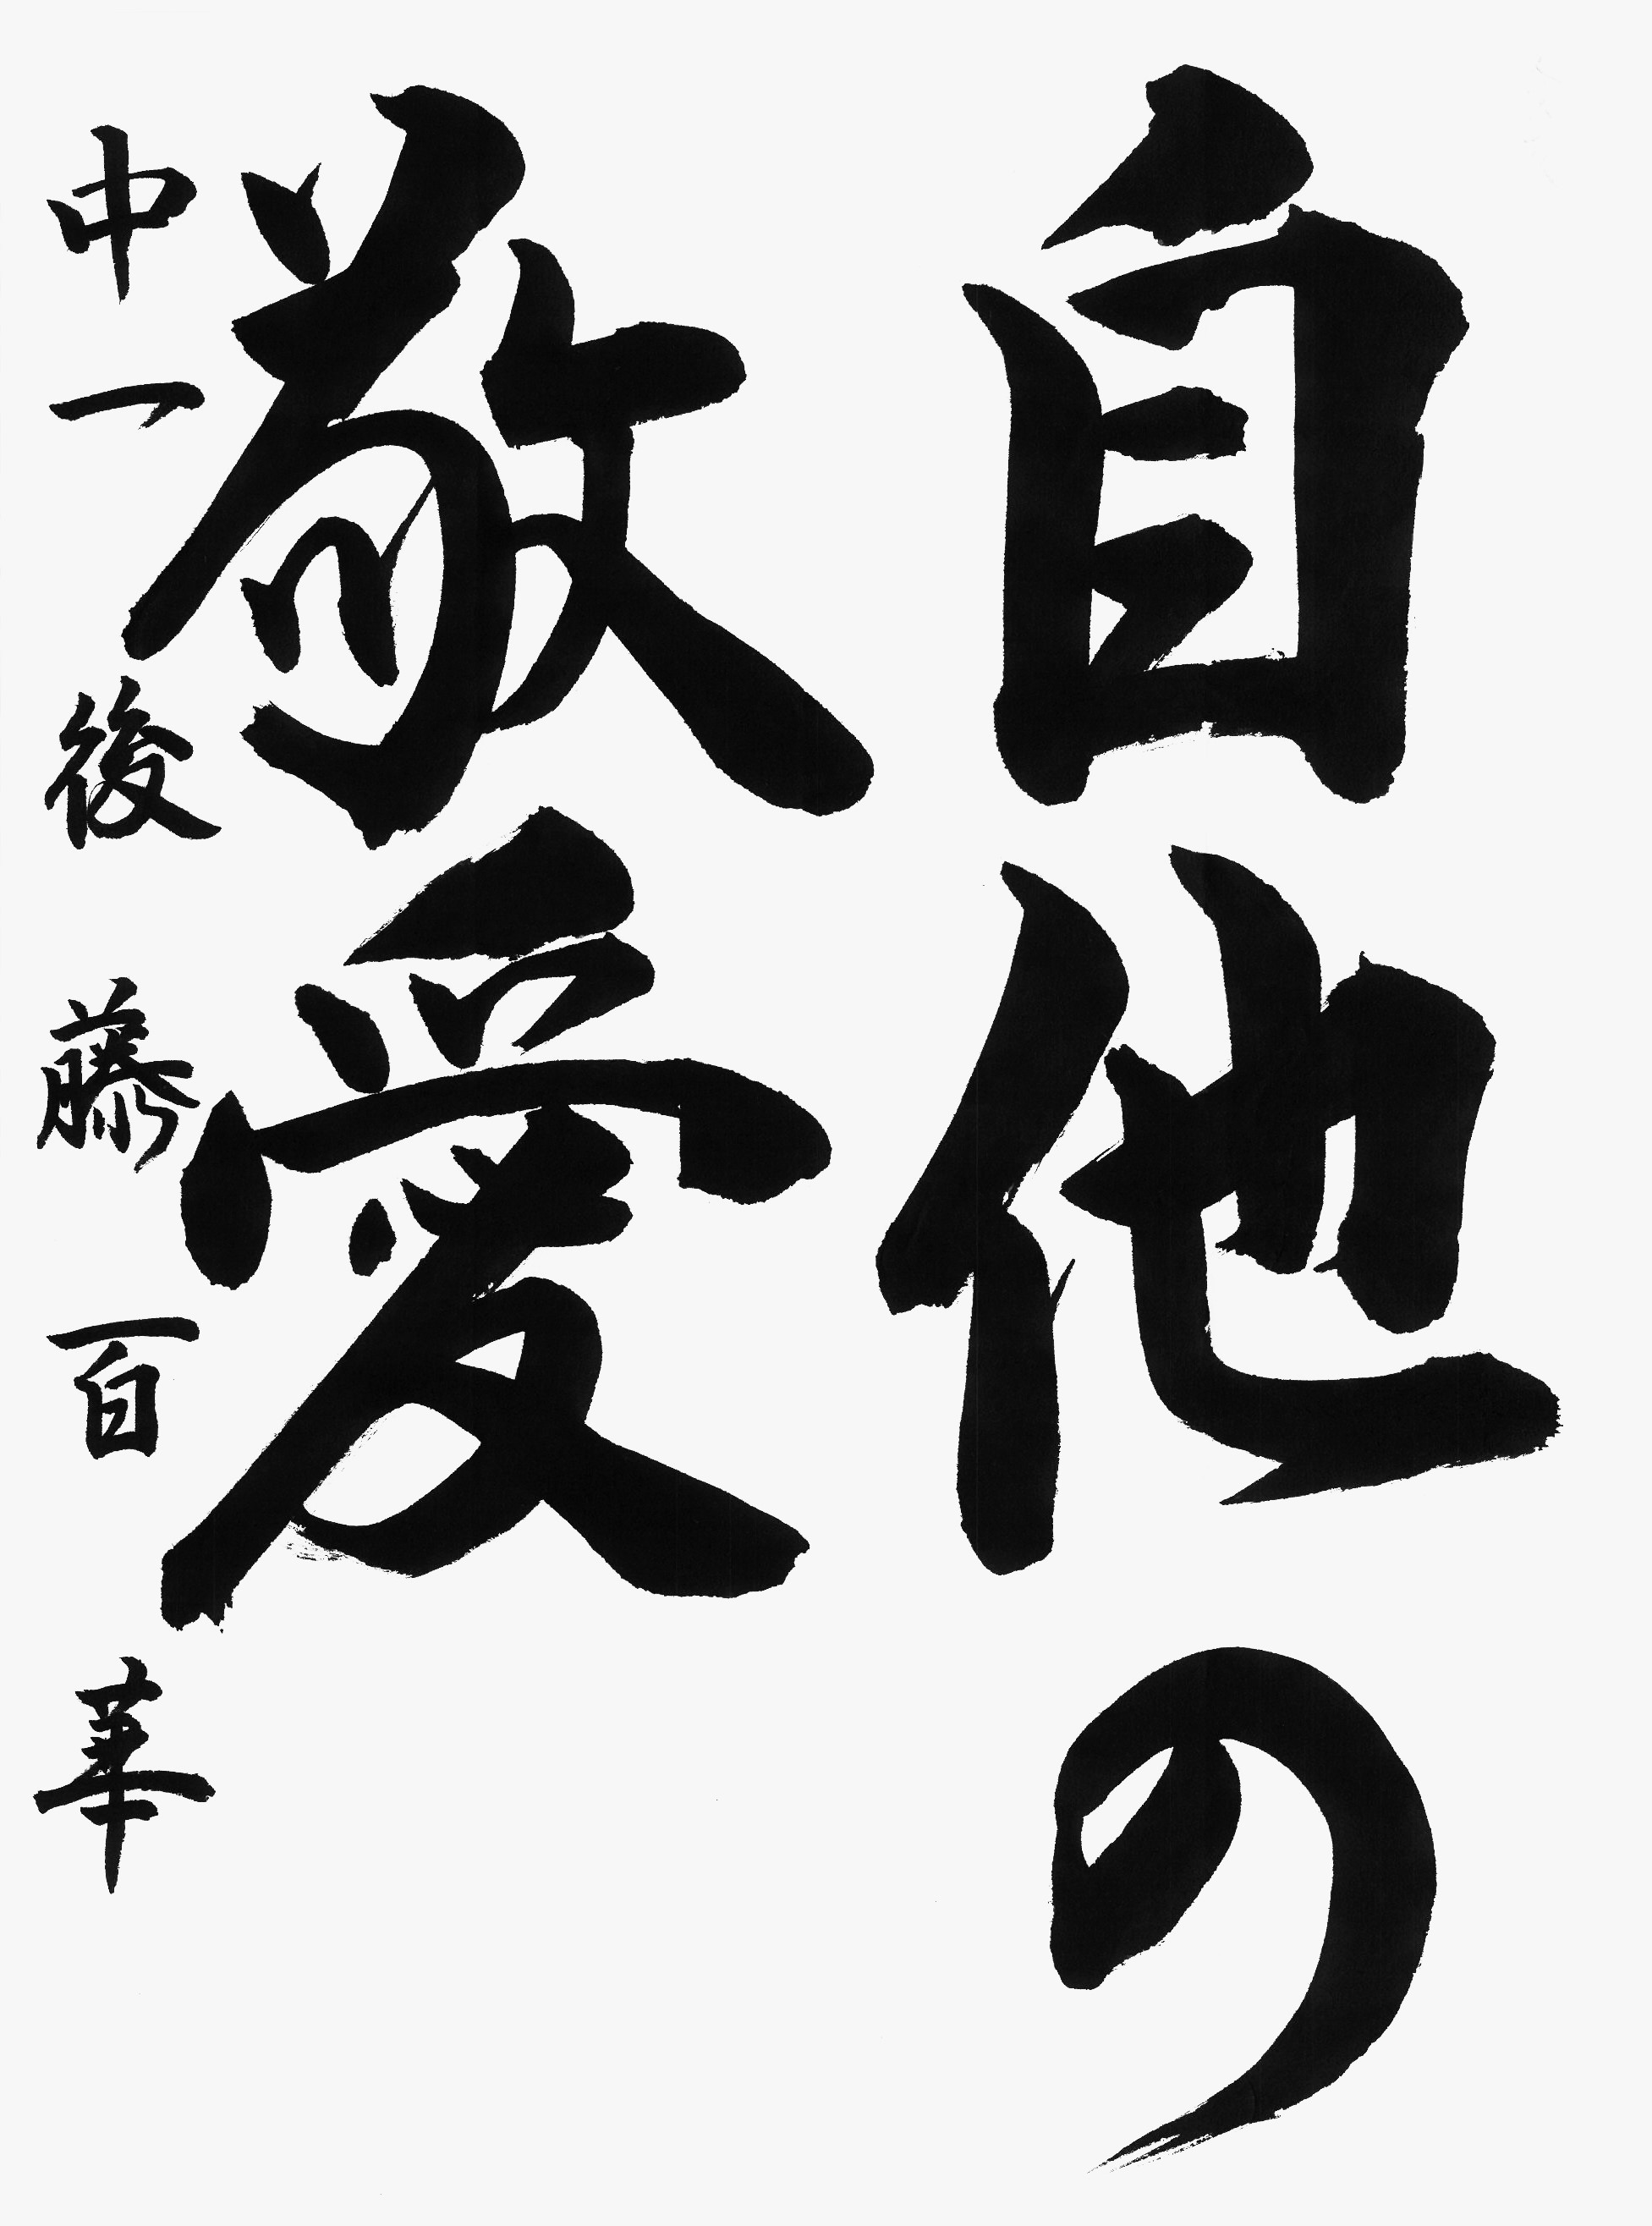 自他の
敬愛
中一 後藤百華